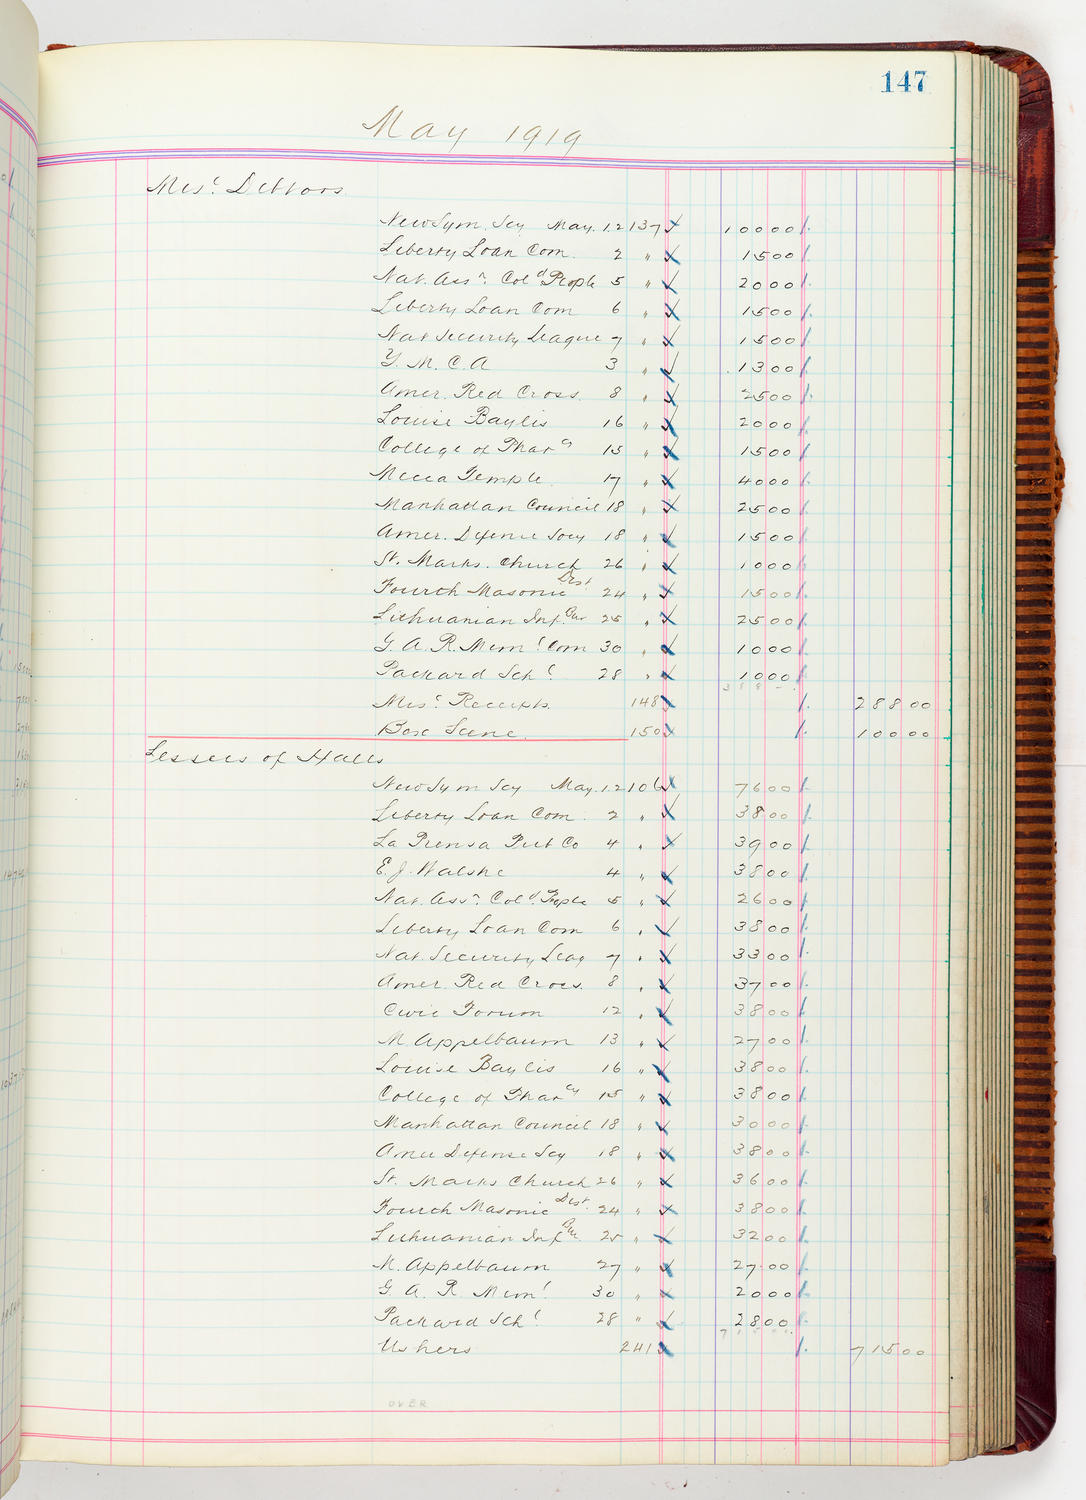 147
May 1919
Misc. Debtors
New Sym. Scy May. 12 137 100 00
Liberty Loan Com. 2 " 15 00
Nat. Assn. Cold People 5 " 20 00
Liberty Loan Com 6 " 15 00
Nat Security League 7 " 15 00
Y. M. C. A 3 " 13 00
Amer. Red Cross. 8 " 25 00
Louise Baylis 16 " 20 00
College of Pharcy 15 " 15 00
Mecca Temple. 17 " 40 00
Manhattan Council 18 " 25 00
Amer. Defense Socy 18 " 15 00
St. Marks. Church 26 " 10 00
Fourth Masonic Dist. 24 " 15 00
Lithuanian Inf. Bur 25 " 25 00
G. A. R. Mem'l Com 30 " 10 00
Packard Schl. 28 " 10 00
388 -
Misc. Receipts. 148 288 00
Box Scene. 150 100 00
Lessees of Halls
New Sym Scy May. 12 106 76 00
Liberty Loan Com. 2 " 38 00
La Prensa Pub Co 4 " 39 00
E. J. Walshe 4 " 38 00
Nat. Assn. Cold. People 5 " 26 00
Liberty Loan Com 6 " 38 00
Nat. Security Leag 7 " 33 00
Amer. Red Cross. 8 " 37 00
Civic Forum 12 " 38 00
M. Appelbaum 13 " 27 00
Louise Baylis 16 " 38 00
College of Pharcy 15 " 38 00
Manhattan Council 18 " 30 00
Amer Defense Scy 18 " 38 00
St. Marks Church 26 " 36 00
Fourth Masonic Dist. 24 " 38 00
Lithuanian Inf Bur 25 " 32 00
M. Appelbaum 27 " 27 00
G. A. R. Mem'l 30 " 20 00
Packard Schl. 28 " 28 00
Ushers 241 715 00
OVER